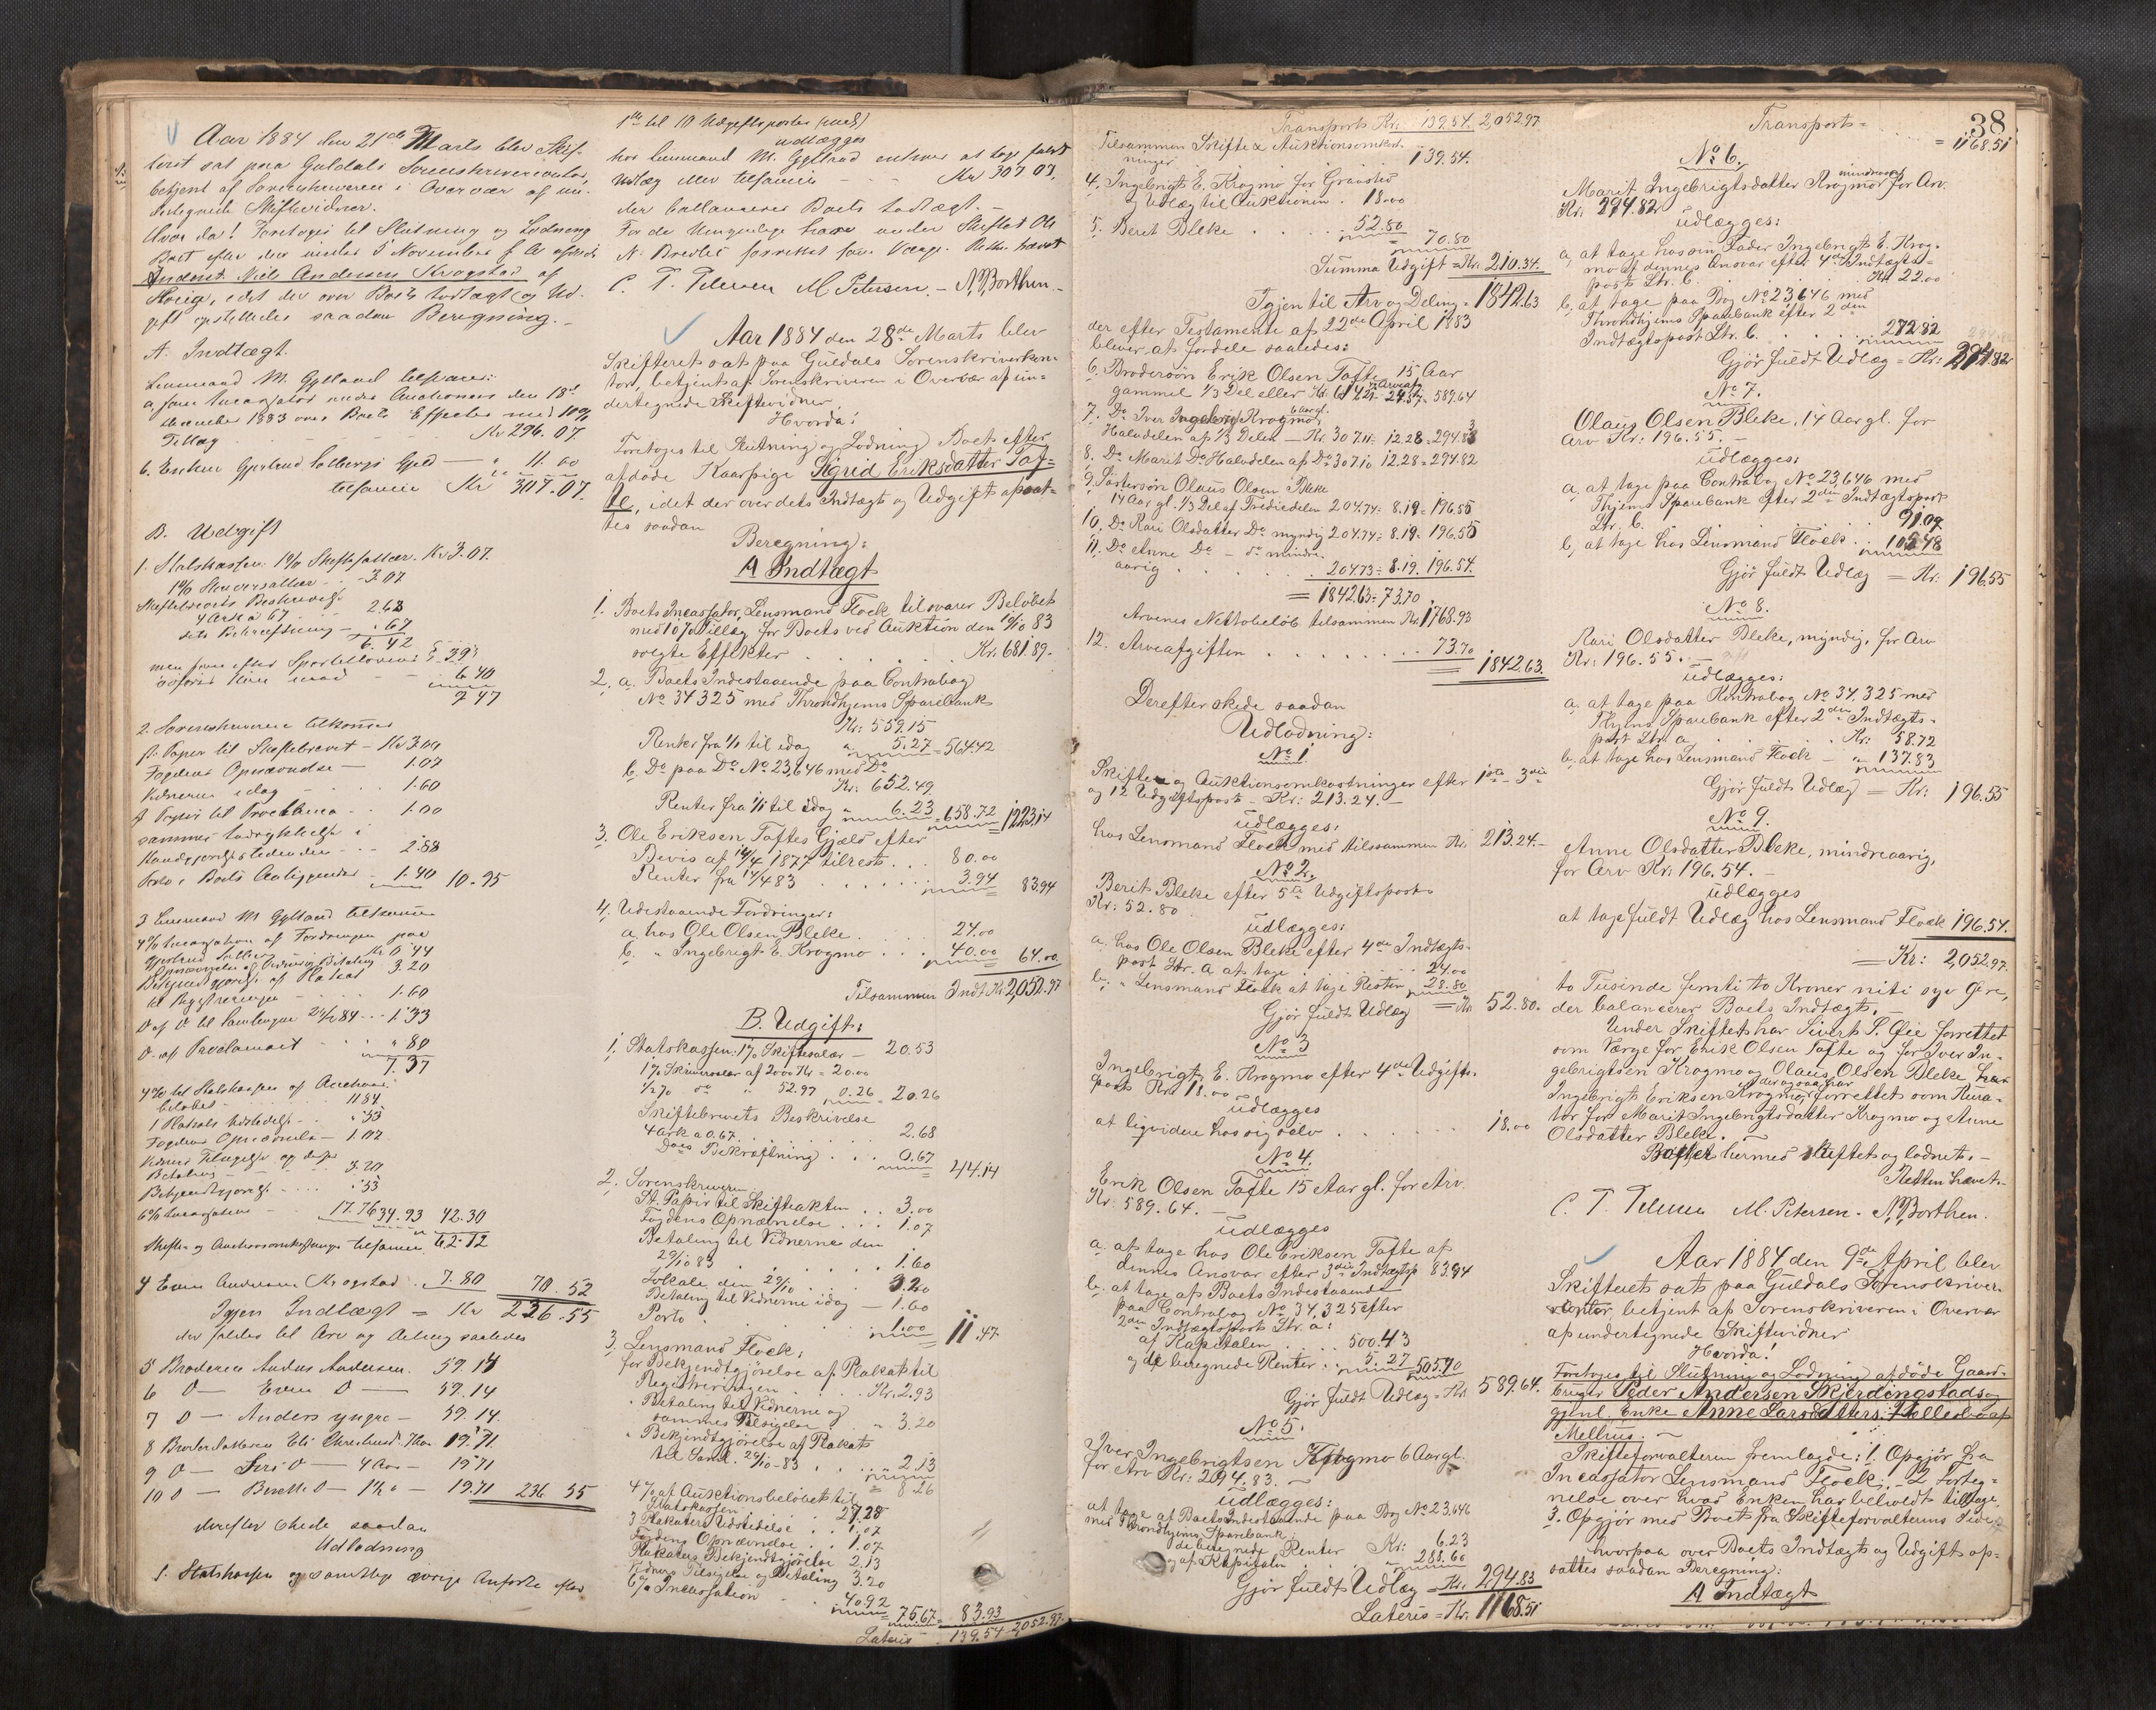 Aar 1884 den 21de Marts blev Skif-
teret sat paa Guldals Sorenskrivercontor,
betjent af Sorenskriveren i Overvær af un-
dertegnede Skiftevidner.
Hvorda! Foretoges til Slutning og Lodning
Boet efter den under 5 November f. A. afdøde
Inderst Niels Andersen Krogstad af
Horig, idet der over Boets Indtægt og Ud-
gift opstilledes saadan Beregning.
A. Indtægt.
Lensmand M. Gylland tilsvarer:
a, som Incassator under Auctionen den 18de
December 1883 over Boets Effecter med 10%
Tillæg Kr 296.07.
b. Enken Gjertrud Solbergs Gjeld — " 11.00
tilsammen Kr 307.07.
B. Udgift
1. Statskassen: 1% Skiftesallær. Kr 3.07.
1% Skriversallær - 3.07
Skiftebrevets Beskrivelse
4 Ark à 67 2.68
dets Bekræftning - .67
6.42
men som efter Sportelloven § 39
6.40
9.47
2. Sorenskriveren tilkommer
st. Papir til Skiftebrevet - Kr 3.00
Fogdens Opnævnelse — 1.07
Vidnerne idag - 1.60
st Papir til Proclama - 1.00
sammes Indrykkelse i
Kundgjørelsestidenden - 2.88
Porto i Boets Anliggender - 1.40 10.95
3 Lensmand M Gylland tilkommer
4% Incassation af Fordringen paa
Gjertrud Solberg Kr 0.44
Opnævnelse af Vidner og Betaling 3.20
Bekjendtgjørelse af Plakat
til Registreringen 1.60
D af D til Samlingen 24/1 84 - 1.33
D. af Proclamaet " 80
7.37
4% til Statskassen af Auctions-
beløbet 11.84
1 Plakats Udstedelse - " 53
Fogdens Opnævnelse - 1.07
Vidners Tilsigelse og deres
Betaling 3.20
Bekjendtgjørelse " 53
6% Incassation 17.76 34.93 42.30
Skifte og Auctionsomkostninger tilsammen 62.72
4 Even Andersen Krogstad 7.80 70.52
Igjen Indtægt = Kr 236.55
der falder til Arv og Deling saaledes
5 Broderen Andus Andersen 59.14
6 D — Even D — 59.14
7 D — Anders yngre — 59.14.
8 Broderdatteren Eli 19.71
9 D — Siri D — 4 Aar — 19.71
10 D — Berette D — 1½ " — 19.71 236 55
derefter skede saadan
Udlodning
1. Statskassen og samtlige øvrige Anførte efter
1ste til 10 Udgiftsposter (incl)
udlægges
hos Lensmand M. Gylland enhver at tage fuldt
Udlæg eller tilsammen — Kr 307.07.
der ballancerer Boets Indtægt. —
For de Umyndige har under Skiftet Ole
N. Bredli forrettet som Værge. Retten hævet
C. T. Petersen M. Petersen. — N. Borthen. —
Aar 1884 den 28de Marts blev
Skifteret sat paa Guldals Sorenskriverkon-
tor, betjent af Sorenskriveren i Overvær af un-
dertegnede Skiftevidner.
Hvorda!
Foretoges til Slutning og Lodning Boet efter
afdøde Kaarpige Sigrid Eriksdatter Taf-
te, idet der over dets Indtægt og Udgift opsat-
tes saadan
Beregning:
A Indtægt
1. Boets Incassator, Lensmand Flock tilsvarer Beløbet
med 10% Tillæg for Boets ved Auktion den 19/10 83
solgte Effekter Kr. 681.89.
2. a. Boets Indestaaende paa Contrabog
No 34325 med Throndhjems Sparebank
Kr: 559.15
Renter fra 1/1 til idag " 5.27 = 564.42
b. Do paa Do No 23,646 med Do
Kr: 652.49.
Renter fra 1/1 til idag " 6.23 = 658.72 = 1223.14
3. Ole Eriksen Taftes Gjæld efter
Bevis af 14/4 1877 tilrest 80.00
Renter fra 14/4 83 3.94 83.94
4. Udestaaende Fordringer:
a, hos Ole Olsen Bleke 24.00
b. " Ingebrigt E. Krogmo 40.00 64.00
Tilsammen Indt. Kr. 2,052.97
B. Udgift:
1. Statskassen: 1% Skiftesalær — 20.53
1% Skriversalær af 2000 Kr = 20.00
½% do " 52.97 0.26 = 20.26
Skiftebrevets Beskrivelse
4 Ark a 0.67 2.68
Dets Bekræftning 0.67
= 44.14
2. Sorenskriveren
St. Papir til Skifteakten 3.00
Fogdens Opnævnelse 1.07
Betaling til Vidnerne den
29/10 83 1.60
Lokale den 29/10 3.20
Betaling til Vidnerne idag — 1.60
Porto 1.00
= 11.47
3. Lensmand Flock:
for Bekjendtgjørelse af Plakat til
Registreringen Kr. 2.93
" Betaling til Vidnerne og
sammes Tilsigelse " 3.20
" Bekjendtgjørelse af Plakat
til Saml. 29/10-83 2.13
= 8.26
4% af Auktionsbeløbet til
Statskassen 27.28
3 Plakaters Udstedelse 1.07
Fogdens Opnævnelse 1.07
Plakaters Bekjendtgjørelse 2.13
Vidners Tilsigelse og Betaling 3.20
6% Incassation 40.92
= 75.67 = 83.93
Lateris 139.54 2,052.97
Transport Kr. 139.54. 2,052.97.
Tilsammen Skifte & Auktionsomkost-
ninger 139.54.
4. Ingebrigt E. Krogmo for Gravsted
og Udlæg til Auktionen 18.00
5. Berit Bleke 52.80
= 70.80
Summa Udgift = Kr. 210.34.
Igjen til Arv og Deling = 1842.63
der efter Testamente af 22de April 1883
bliver at fordele saaledes:
6. Brodersøn Erik Olsen Tafte 15 Aar
gammel 1/3 Del eller Kr. 614.21 ÷ Arveafg. 24.57 = 589.64
7. Do Iver Ingebrigt. Krogmo 6 Aar gl.
Halvdelen af 1/3 Delen — Kr. 307.11 ÷ 12.28 = 294.83
8. Do Marit Do Halvdelen af Do 307.10 12.28 = 294.82
9. Søstersøn Olaus Olsen Bleke
14 Aar gl. 1/3 Del af Trediedelen 204.74 ÷ 8.19 = 196.55
10. Do Kari Olsdatter Do myndig 204.74 ÷ 8.19 = 196.55
11. Do Anne Do — do mindre-
aarig 204.73 ÷ 8.19. 196.54.
= 1842.63 ÷ 73.70
Arvenes Nettobeløb tilsammen Kr. 1768.93
12. Arveafgiften 73.70
= 1842.63.
Derefter skede saadan
Udlodning:
No 1
Skifte og Auktionsomkostninger efter 1ste - 3die
og 12 Udgiftspost — Kr: 213.24. —
udlægges:
hos Lensmand Flock med tilsammen Kr. 213.24. —
No 2.
Berit Bleke efter 5te Udgiftspost
Kr: 52.80
udlægges:
a. hos Ole Olsen Bleke efter 4de Indtægts-
post Ltr. a at tage 24.00
b. " Lensmand Flock at tage Resten 28.80
Gjør fuldt Udlæg = Kr 52.80.
No 3
Ingebrigt E. Krogmo efter 4de Udgifts-
post Kr. 18.00
udlægges
at ligvidere hos sig selv 18.00
No 4.
Erik Olsen Tafte 15 Aar gl. for Arv
Kr: 589.64. —
udlægges
a. at tage hos Ole Eriksen Tafte af
dennes Ansvar efter 3die Indtægtsp 83.94
b. at tage af Boets Indestaaende
paa Contrabog No 34,325 efter
2den Indtægtspost Ltr. a:
af Kapitalen 500.43
og de beregnede Renter 5.27 505.70
Gjør fuldt Udlæg = Kr 589.64.
No 5.
Iver Ingebrigtsen Krogmo 6 Aar gl.
for Arv Kr: 294.83. —
udlægges:
at tage af Boets Indestaaende paa Bog No 23,646
med Throndhjems Sparebank
de beregnede Renter Kr: 6.23
og af Kapitalen " 288.60
Gjør fuldt Udlæg = Kr. 294.83
Lateris = Kr. 1168.51
38.
Transport = 1168.51
No 6.
Marit Ingebrigtsdatter Krogmo mindreaarig for Arv
Kr: 294.82
udlægges:
a, at tage hos sin Fader Ingebrigt E. Krog-
mo af dennes Ansvar efter 4de Indtægts-
post Ltr. b. Kr. 22.00
b, at tage paa Bog No 23,646 med
Throndhjems Sparebank efter 2den
Indtægtspost Ltr. b. 272.82
Gjør fuldt Udlæg = Kr: 294.82
No 7.
Olaus Olsen Bleke, 14 Aar gl. for
Arv Kr: 196.55. —
udlægges:
a, at tage paa Contrabog No 23,646 med
Thjems Sparebank efter 2den Indtægtspost
Ltr. b. 91.07
b, at tage hos Lensmand Flock 105.48
Gjør fuldt Udlæg = Kr: 196.55
No 8.
Kari Olsdatter Bleke, myndig, for Arv
Kr: 196.55. —
udlægges:
a, at tage paa Kontrabog No 34,325 med
Thjems Sparebank efter 2den Indtægts-
post Ltr. a Kr: 58.72
b, at tage hos Lensmand Flock — " 137.83
Gjør fuldt Udlæg = Kr: 196.55
No 9.
Anne Olsdatter Bleke, mindreaarig,
for Arv Kr: 196.54. —
udlægges
at tage fuldt Udlæg hos Lensmand Flock 196.54.
= Kr: 2,052.97.
to Tusinde femti to Kroner niti syv Øre,
der balancerer Boets Indtægt. —
Under Skiftet har Sivert P. Øie forrettet
som Værge for Erik Olsen Tafte og for Iver In-
gebrigtsen Krogmo og Olaus Olsen Bleke har
Ingebrigt Eriksen Krogmo, der ogsaa har forrettet som Kura-
tor for Marit Ingebrigtsdatter Krogmo og Anne
Olsdatter Bleke.
Boet er hermed skiftet og lodnet. —
Retten hævet. —
C. T. Petersen M. Petersen. N. Borthen.
Aar 1884 den 9de April blev
Skifteret sat paa Guldals Sorenskriver-
contor, betjent af Sorenskriveren i Overvær
af undertegnede Skiftevidner
Hvorda!
Foretoges til Slutning og Lodning afdøde Gaard-
bruger Peder Andersen Skjerdingstads og
gjenl. Enke Anne Larsdatters Fællesbo af
Melhus. —
Skifteforvalteren fremlagde: 1. Opgjør fra
Incassator Lensmand Flock; — 2 Forteg-
nelse over hvad Enken har beholdt tillage,
3. Opgjør med Boet fra Skifteforvalterens Side,
hvorpaa over Boets Indtægt og Udgift op-
sattes saadan Beregning:
A Indtægt